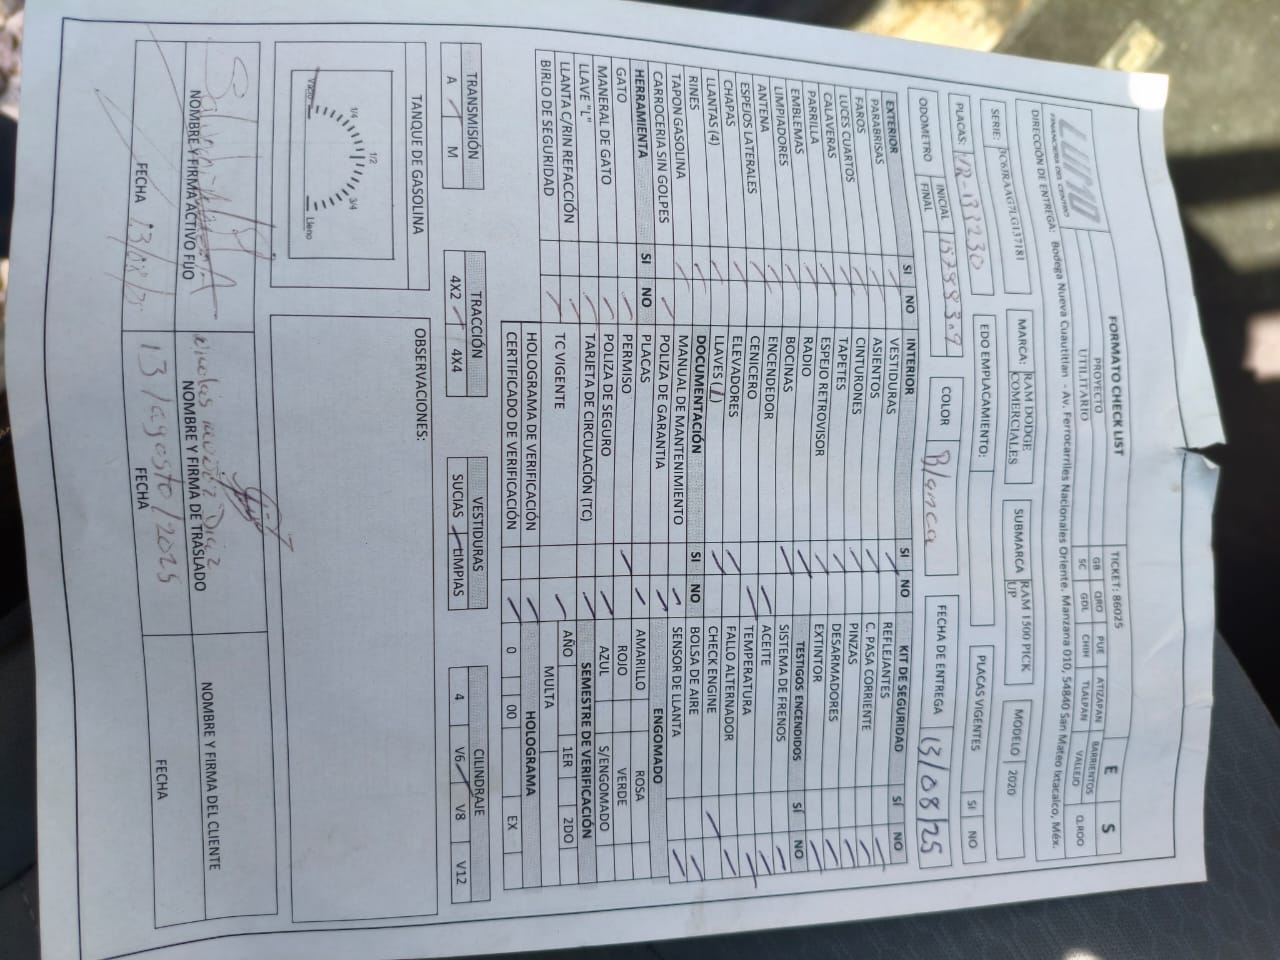 LUMO
FINANCIERA DEL CENTRO
FORMATO CHECK LIST
PROYECTO
UTILITARIO
TICKET: 86025
GB QRO PUE ATIZAPAN BARRIENTOS Q.ROO
SC GDL CHIH TLALPAN VALLEJO
E S
DIRECCIÓN DE ENTREGA: Bodega Nueva Cuautitlan - Av. Ferrocarriles Nacionales Oriente. Manzana 010, 54840 San Mateo Ixtacalco, Méx.
SERIE: 3C6JRAAG7LG137181 MARCA: RAM DODGE COMERCIALES SUBMARCA RAM 1500 PICK UP MODELO 2020
PLACAS: EDO EMPLACAMIENTO: PLACAS VIGENTES SI NO
ODOMETRO INICIAL
FINAL
COLOR Blanca FECHA DE ENTREGA 13/08/25
EXTERIOR SI NO INTERIOR SI NO KIT DE SEGURIDAD SÍ NO
PARABRISAS VESTIDURAS REFLEJANTES
FAROS ASIENTOS C. PASA CORRIENTE
LUCES CUARTOS CINTURONES PINZAS
CALAVERAS TAPETES DESARMADORES
PARRILLA ESPEJO RETROVISOR EXTINTOR
EMBLEMAS RADIO TESTIGOS ENCENDIDOS SÍ NO
LIMPIADORES BOCINAS SISTEMA DE FRENOS
ANTENA ENCENDEDOR ACEITE
ESPEJOS LATERALES CENICERO TEMPERATURA
CHAPAS ELEVADORES FALLO ALTERNADOR
LLANTAS (4) LLAVES (1) CHECK ENGINE
RINES DOCUMENTACIÓN SI NO BOLSA DE AIRE
TAPON GASOLINA MANUAL DE MANTENIMIENTO SENSOR DE LLANTA
CARROCERIA SIN GOLPES POLIZA DE GARANTIA ENGOMADO
HERRAMIENTA SI NO PLACAS AMARILLO ROSA
GATO PERMISO ROJO VERDE
MANERAL DE GATO POLIZA DE SEGURO AZUL S/ENGOMADO
LLAVE "L" TARJETA DE CIRCULACIÓN (TC) SEMESTRE DE VERIFICACIÓN
LLANTA C/RIN REFACCIÓN TC VIGENTE AÑO 1ER 2DO
BIRLO DE SEGURIDAD MULTA
HOLOGRAMA DE VERIFICACIÓN HOLOGRAMA
CERTIFICADO DE VERIFICACIÓN 0 00 EX
TRANSMISIÓN TRACCIÓN VESTIDURAS CILINDRAJE
A M 4X2 4X4 SUCIAS LIMPIAS 4 V6 V8 V12
TANQUE DE GASOLINA OBSERVACIONES:
1/4 1/2 3/4
Vacio Lleno
Nicolas Diaz
NOMBRE Y FIRMA ACTIVO FIJO NOMBRE Y FIRMA DE TRASLADO NOMBRE Y FIRMA DEL CLIENTE
13/agosto/2025
FECHA FECHA FECHA